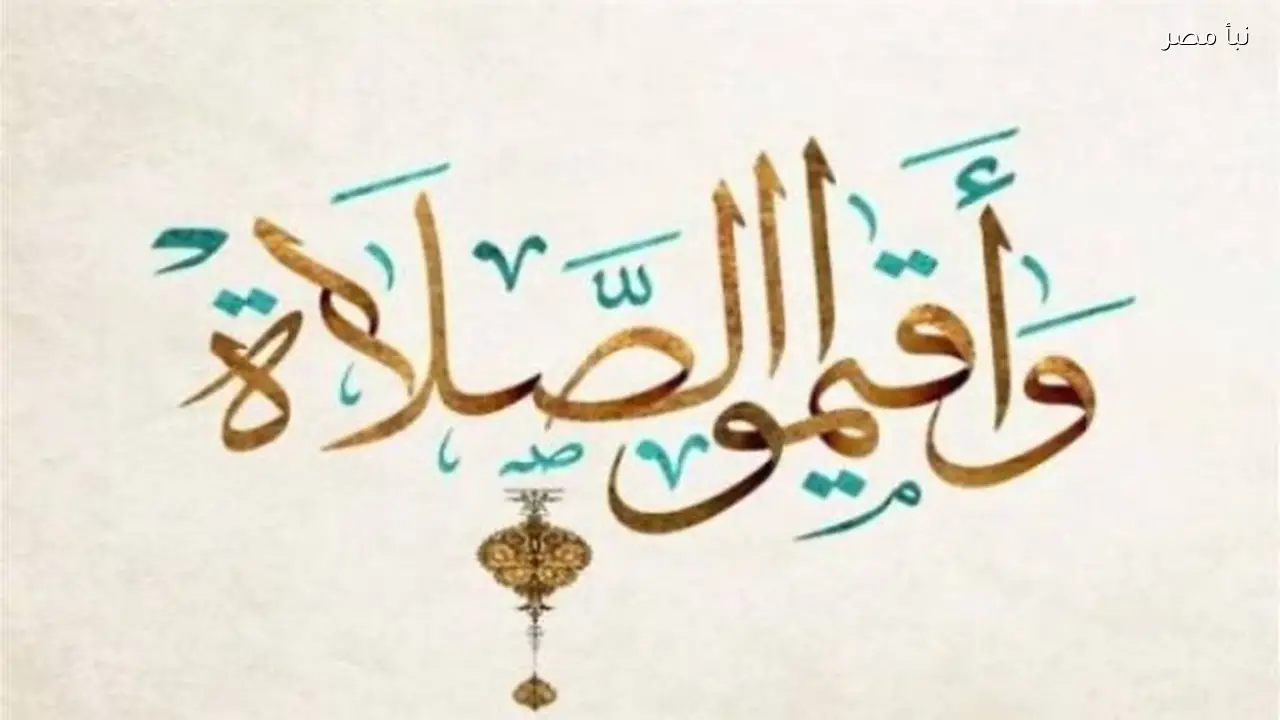 نبأ مصر
وَأَقيموا الصَّلاةَ